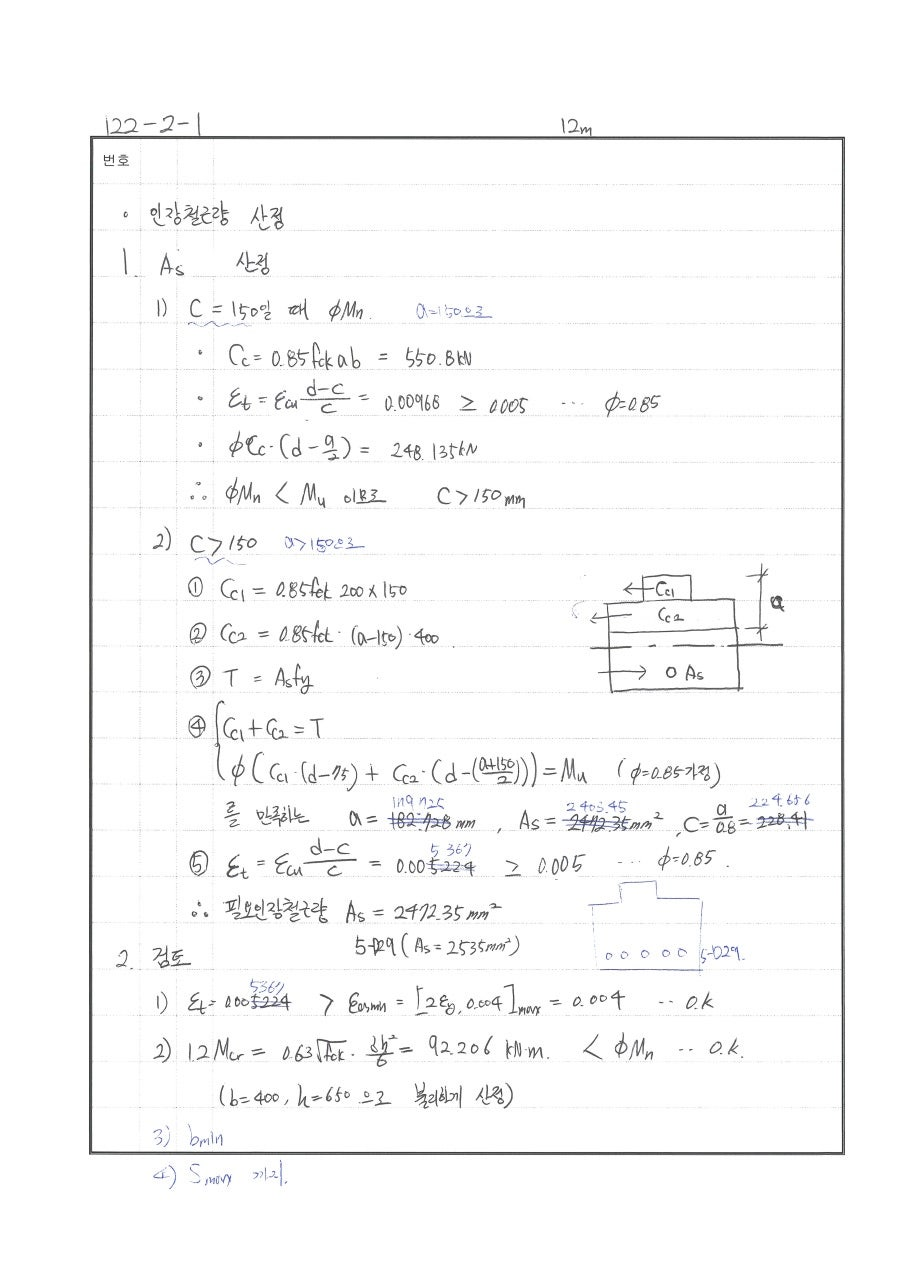 122-2-1
12m
번호
◦ 인장철근량 산정
1. As 산정
1) C = 150일 때 ϕMn. a=150으로
· Cc = 0.85fck a b = 550.8kN
· εt = εcu (d-c)/c = 0.00968 ≥ 0.005 ··· ϕ=0.85
· ϕCc·(d-a/2) = 248.135kN
∴ ϕMn < Mu 이므로 C > 150mm
2) C > 150 a>150으로
① Cc1 = 0.85fck 200 x 150
② Cc2 = 0.85fck · (a-150) · 400
③ T = Asfy
Cc1
Cc2
a
0 As
④ Cc1 + Cc2 = T
ϕ(Cc1·(d-75) + Cc2·(d-((a+150)/2))) = Mu (ϕ=0.85가정)
179.725 2403.45 224.656
를 만족하는 a = 182.728 mm , As = 2472.35mm² , C = a/0.8 = 228.41
5367
⑤ εt = εcu (d-c)/c = 0.005224 ≥ 0.005 ··· ϕ=0.85.
∴ 필요인장철근량 As = 2472.35 mm²
5-D29 (As = 2535mm²)
5-D29.
2. 검토
5367
1) εt = 0.005224 > εasmin = [2εy, 0.004]max = 0.004 ·· O.K
2) 1.2Mcr = 0.63√fck · bh²/6 = 92.206 kN·m. < ϕMn ·· O.K.
(b=400, h=650 으로 불리하게 산정)
3) bmin
4) Smax 까지.